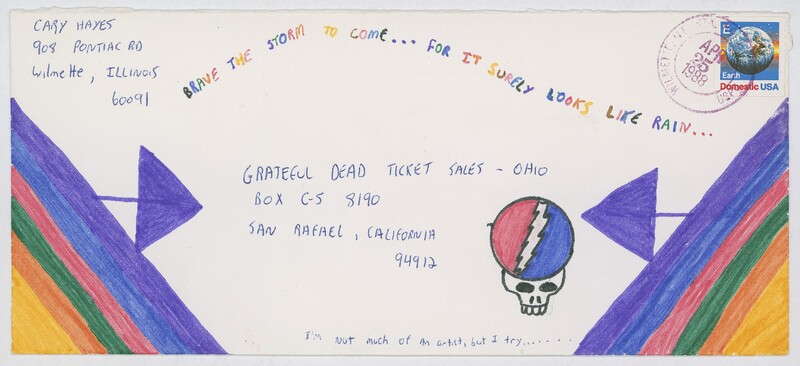 CARY HAYES
908 PONTIAC RD
Wilmette, ILLINOIS
60091
BRAVE THE STORM TO COME... FOR IT SURELY LOOKS LIKE RAIN...
E
Earth
Domestic USA
APR
25
1988
GRATEFUL DEAD TICKET SALES - OHIO
BOX C-S 8190
SAN RAFAEL, CALIFORNIA
94912
I'm not much of an artist, but I try.......